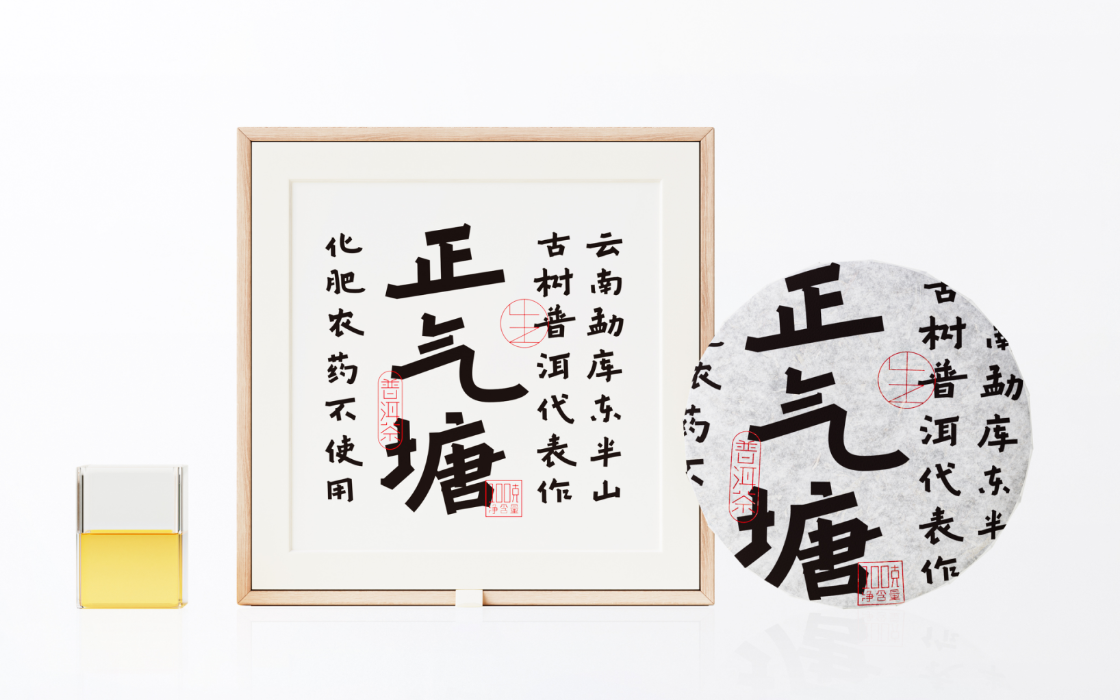 云南勐库东半山
古树普洱代表作
生
正气塘
普洱茶
净含量
化肥农药不使用
南勐库东半
古树普洱代表作
生
正气塘
普洱茶
净含量
农药不